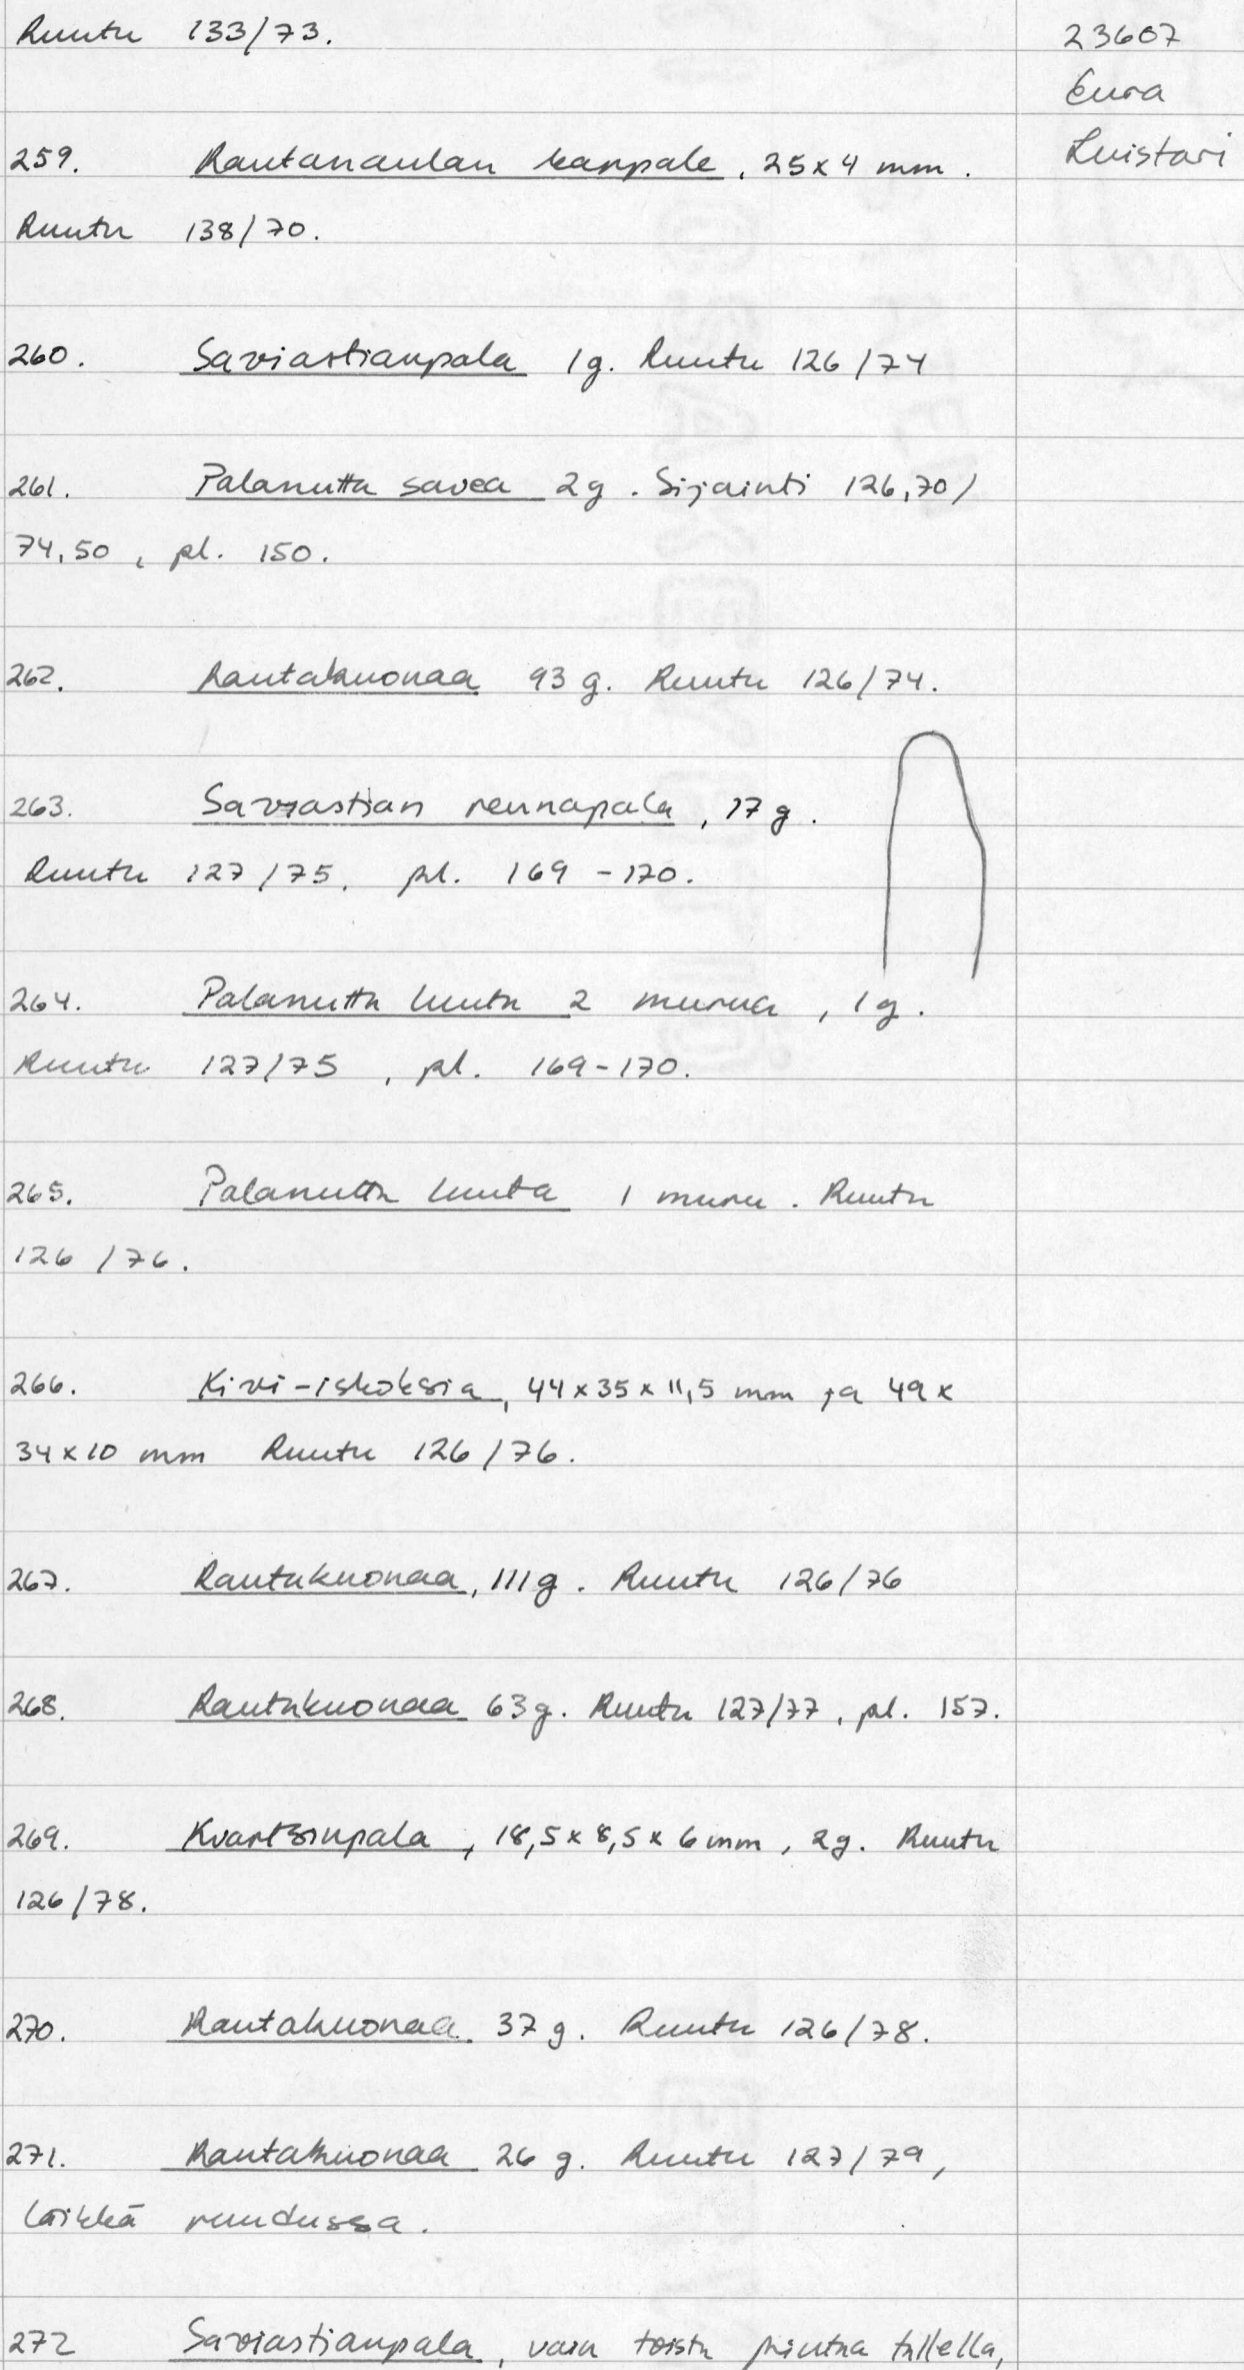 Ruutu 133/73.
23607
Eura
Luistari
259. Rautanaulan kappale, 25x4 mm.
Ruutu 138/70.
260. Saviastianpala 1g. Ruutu 126/74
261. Palanutta savea 2g. Sijainti 126,70/
74,50, pl. 150.
262. Rautakuonaa 93 g. Ruutu 126/74.
263. Saviastian reunapala, 17 g.
Ruutu 127/75, pl. 169-170.
264. Palanutta luuta 2 murua, 1g.
Ruutu 127/75, pl. 169-170.
265. Palanutta luuta 1 muru. Ruutu
126/76.
266. Kivi-iskoksia, 44x35x11,5 mm ja 49x
34x10 mm Ruutu 126/76.
267. Rautakuonaa, 111g. Ruutu 126/76
268. Rautakuonaa 63g. Ruutu 127/77, pl. 157.
269. Kvartsinpala, 18,5x8,5x6mm, 2g. Ruutu
126/78.
270. Rautakuonaa 37 g. Ruutu 126/78.
271. Rautakuonaa 26 g. Ruutu 127/79,
läikkä ruudussa.
272 Saviastianpala, vain toista pintaa tallella,